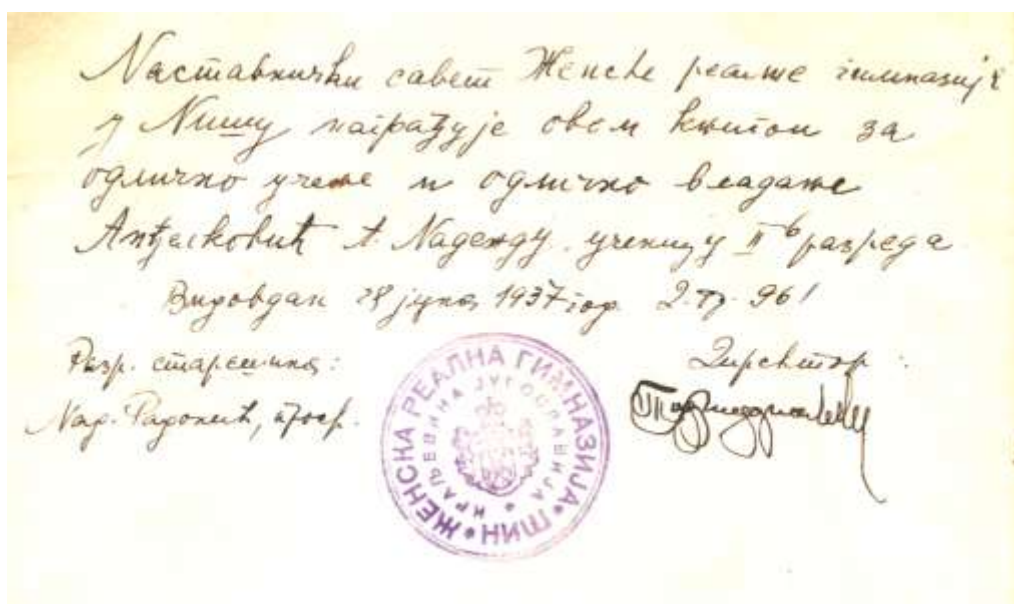 Наставнички савет Женске реалне гимназије
у Нишу награђује овом књигом за
одлично учење и одлично владање
Анђелковић А. Надежду ученицу II б разреда
Видовдан 28 јуна 1937 год.
Разр. старешина:
Директор:
Над. Радонић, проф.
ЖЕНСКА РЕАЛНА ГИМНАЗИЈА • НИШ •
КРАЉЕВИНА ЈУГОСЛАВИЈА •